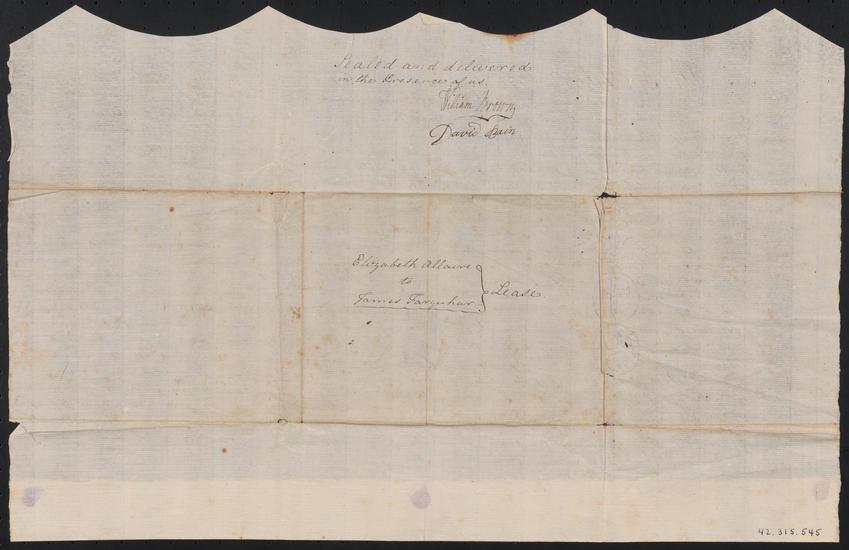 Sealed and delivered
in the Presence of us.
William Brown
David Bain
Elizabeth Allaire
to
James Farquhar
Lease
42.315.545